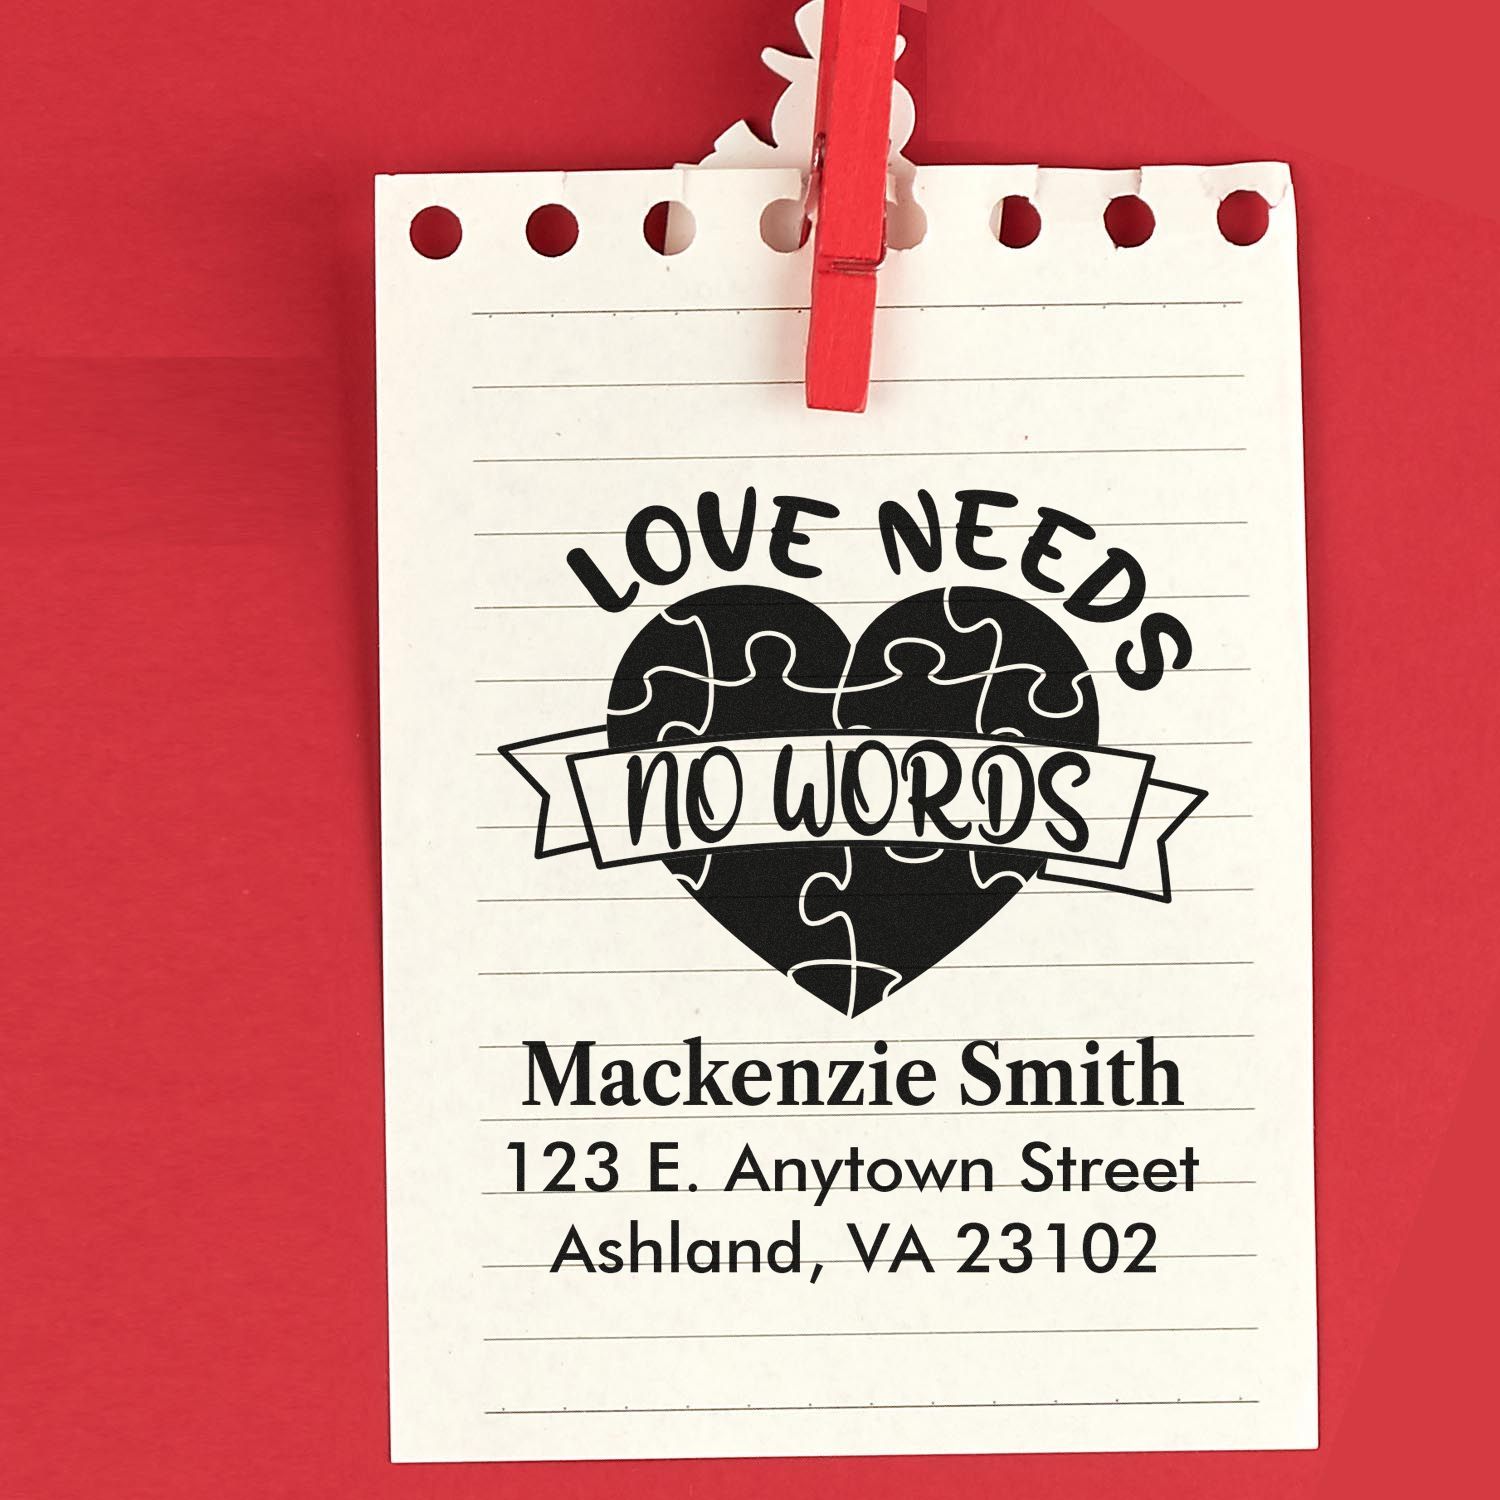 LOVE NEEDS
NO WORDS
Mackenzie Smith
123 E. Anytown Street
Ashland, VA 23102